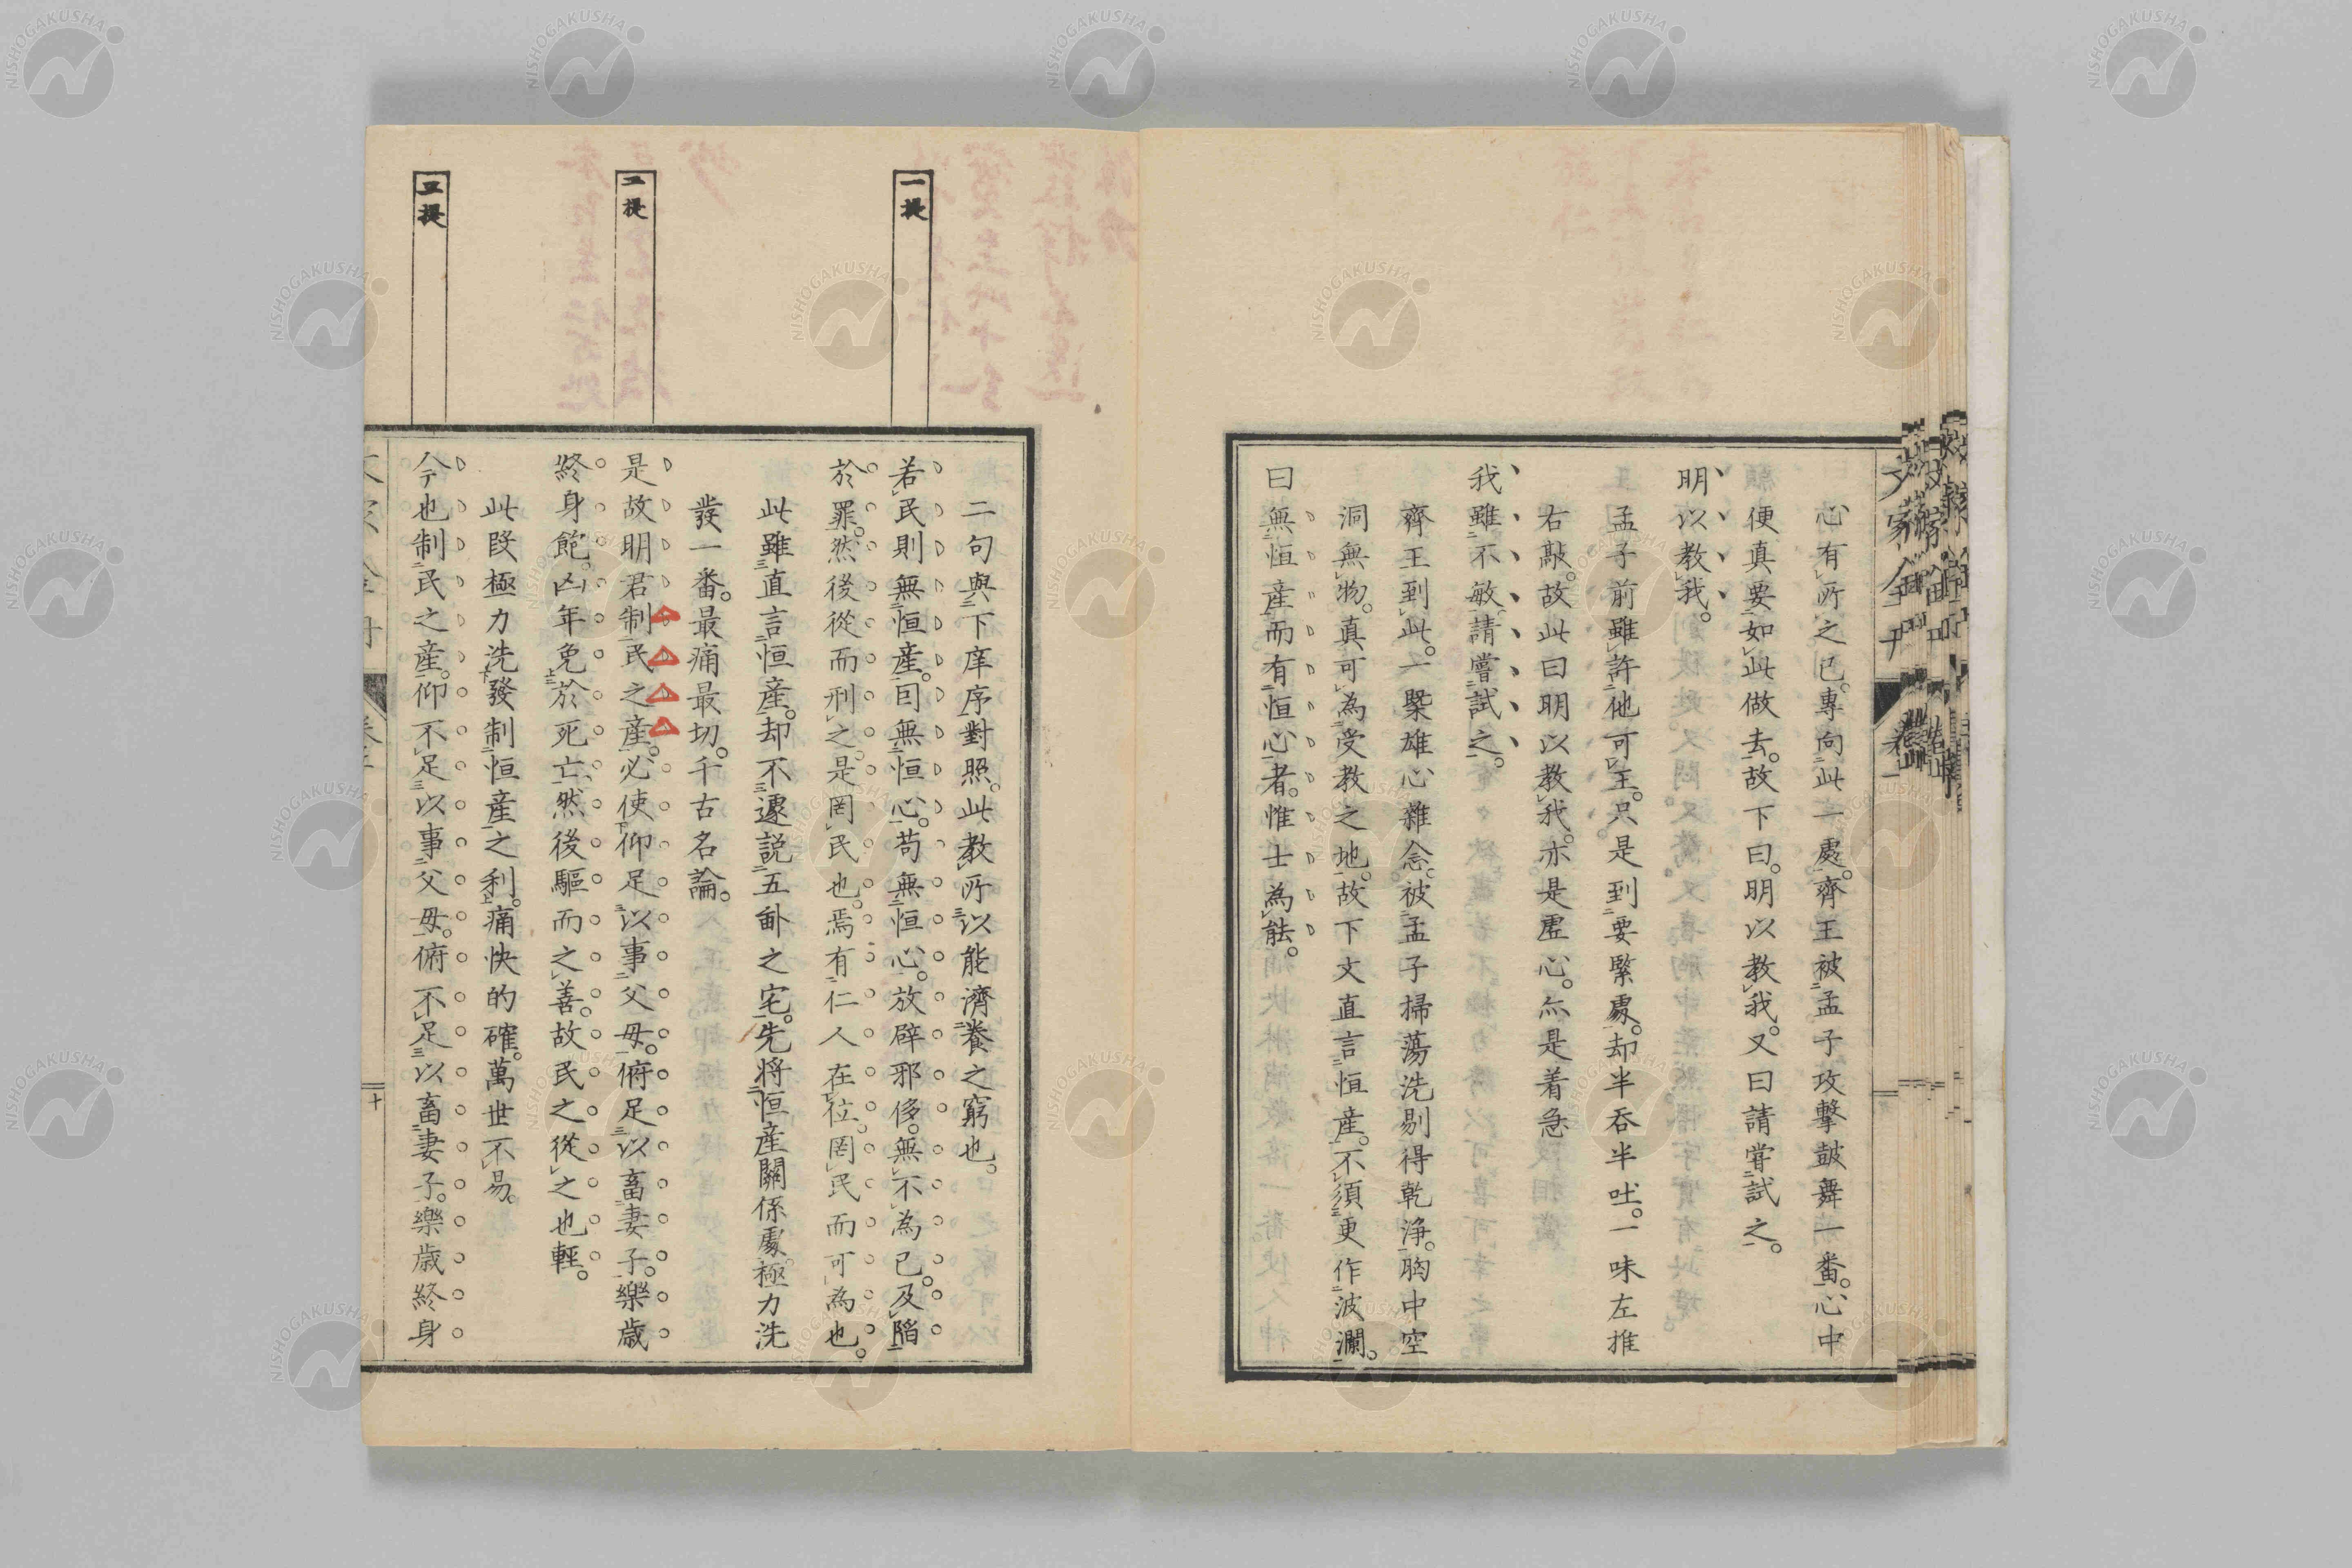 心有所之已。專向此一處。齊王被孟子攻擊鼓舞一番。心中
便真要如此做去。故下曰。明以教我。又曰請嘗試之。
明以教我。
孟子前雖許他可王。只是到要緊處。却半吞半吐。一味左推
右敲。故此曰明以教我。亦是虛心。亦是着急
我雖不敏。請嘗試之。
齊王到此。一槩雄心雜念。被孟子掃蕩洗剔得乾淨。胸中空
洞無物。真可為受教之地。故下文直言恒產。不須更作波瀾。
曰無恒産而有恒心者。惟士為能。
一提
二句與下庠序對照。此教所以能濟養之窮也。
若民則無恒産。因無恒心。苟無恒心。放辟邪侈。無不為已。及陷
於罪。然後從而刑之。是罔民也。焉有仁人在位。罔民而可為也。
此雖直言恒産。却不遽説五畝之宅。先將恒産關係處。極力洗
發一番。最痛最切。千古名論。
二提
是故明君制民之産。必使仰足以事父母。俯足以畜妻子。樂歲
終身飽。凶年免於死亡。然後驅而之善。故民之從之也輕。
此段極力洗發制恒産之利。痛快的確。萬世不易。
三提
今也制民之産。仰不足以事父母。俯不足以畜妻子。樂歲終身
NISHOGAKUSHA